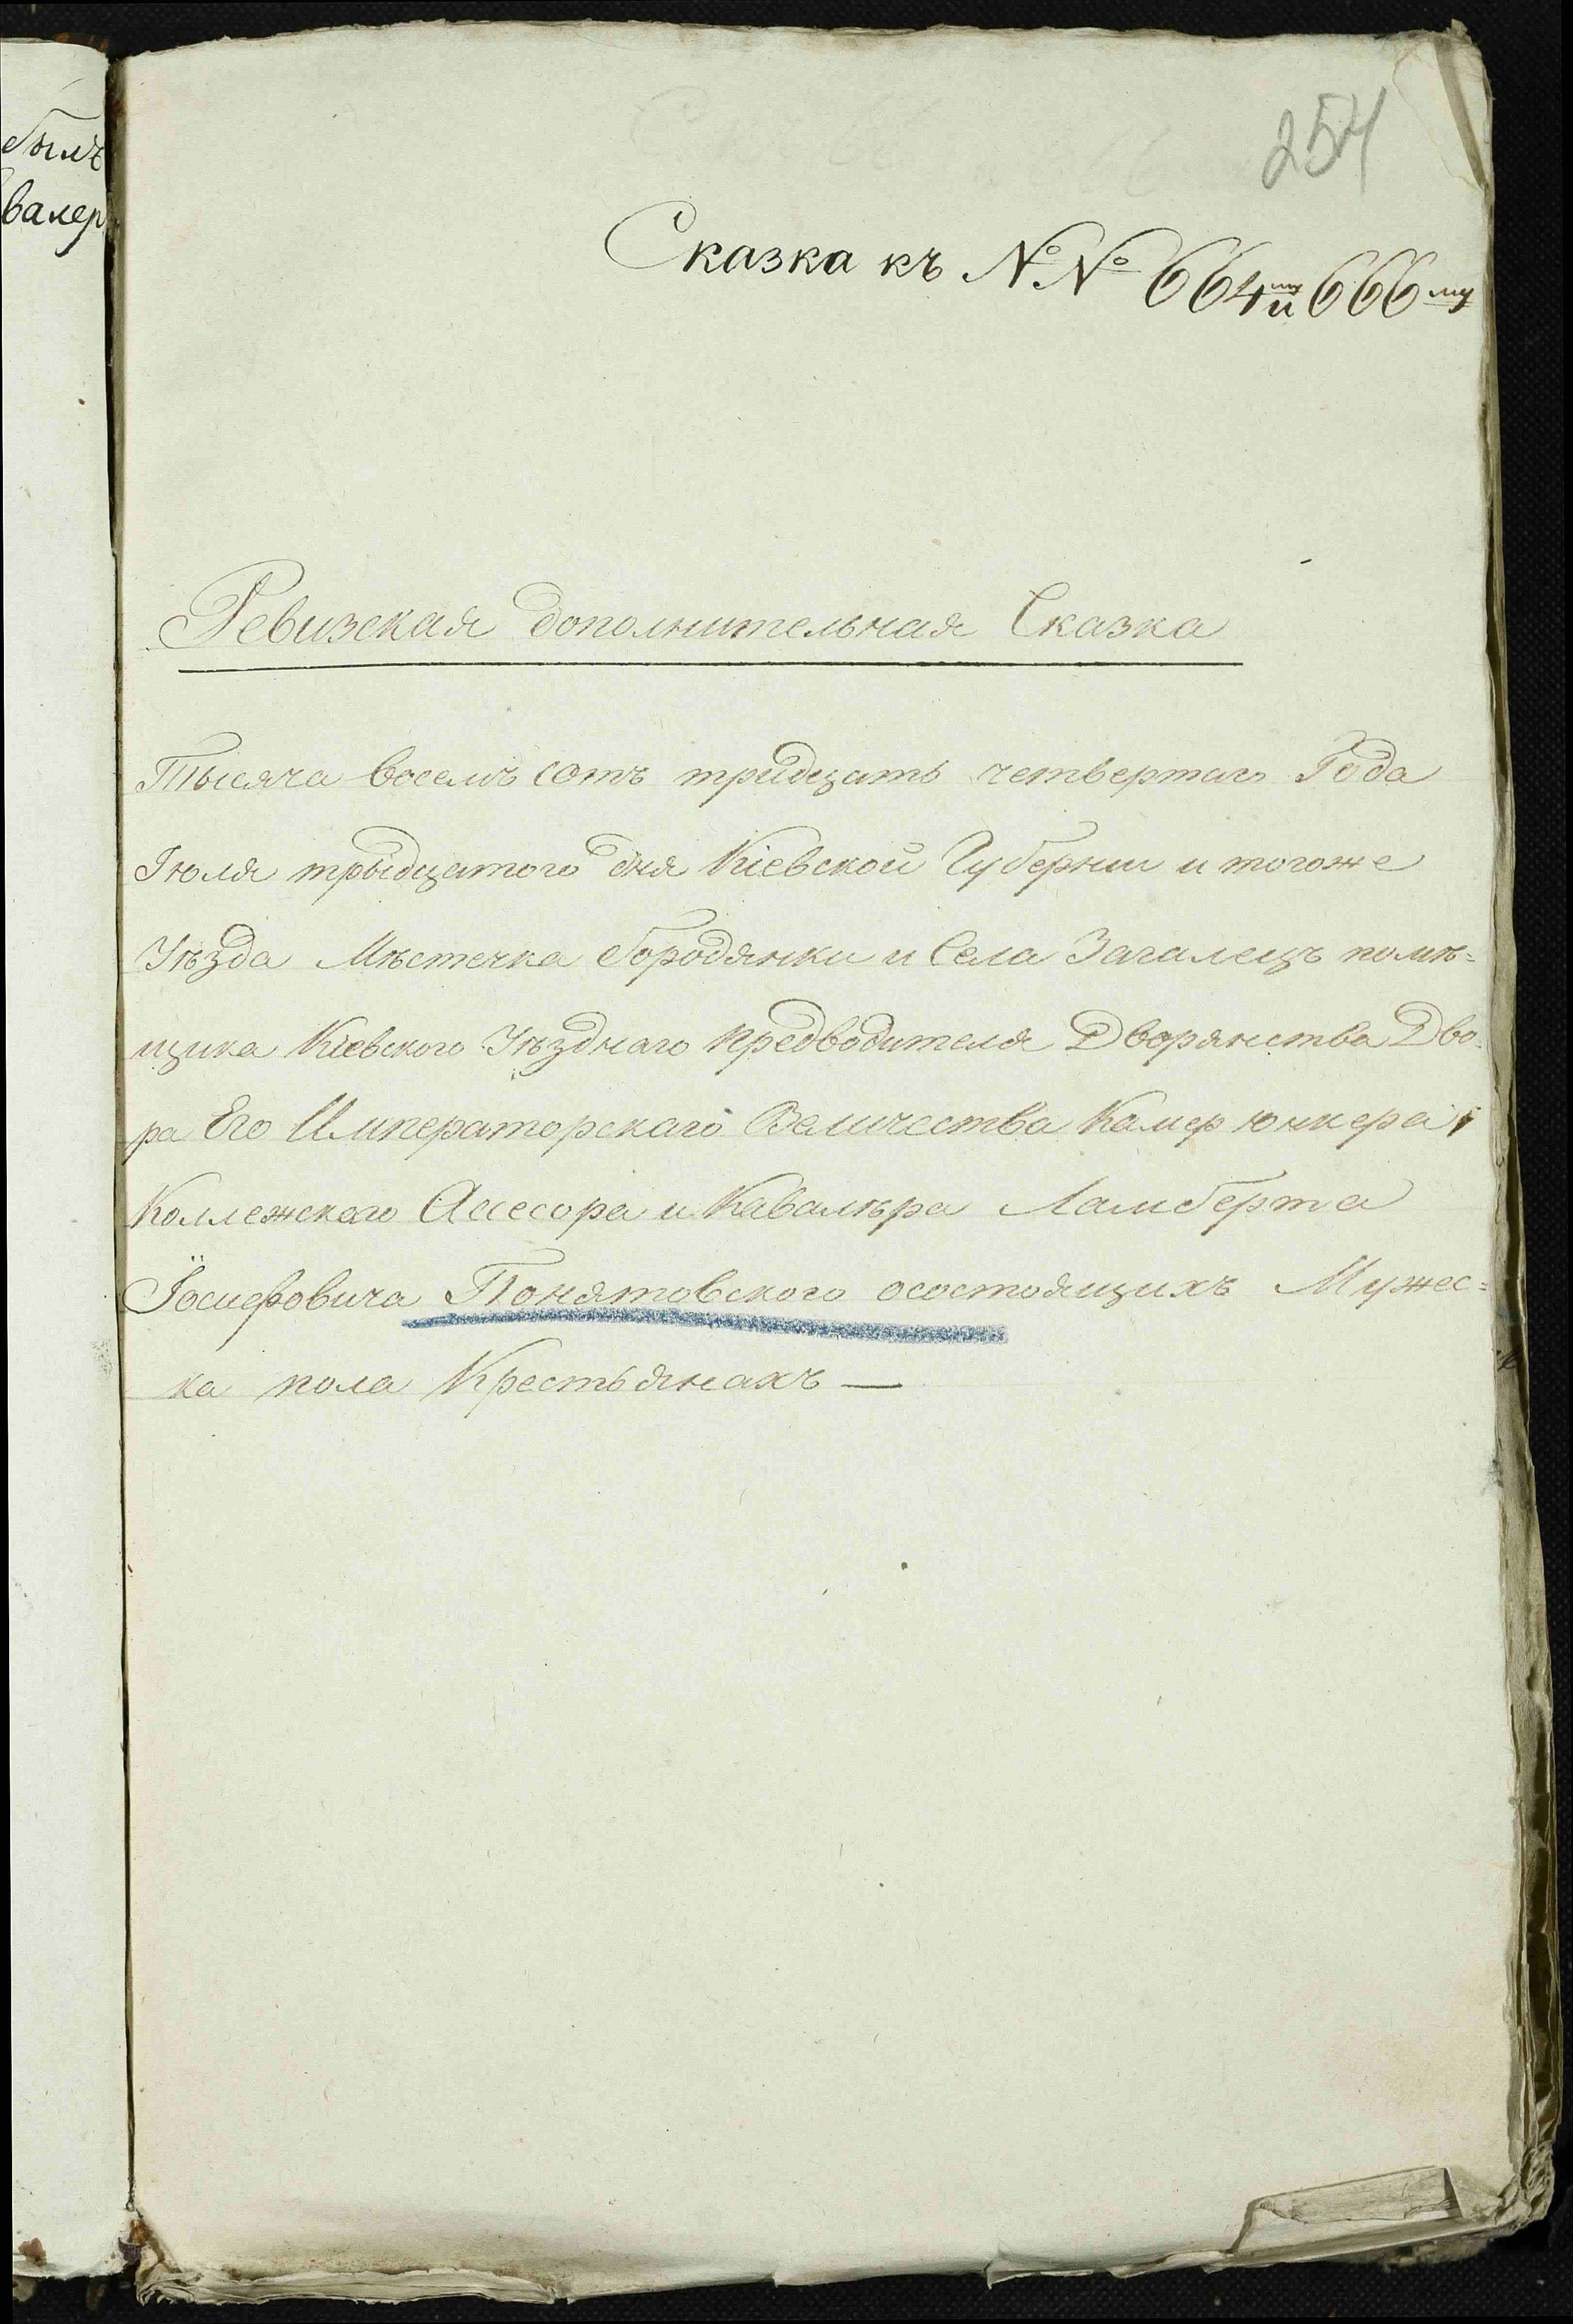 былъ
валер
254
Сказка къ №№ 664му и 666му
Ревизская дополнительная Сказка
Тысяча восемъ сотъ тридцать четвертаго Года
Іюля трыдцатого дня Кіевской Губерніи и тогоже
Уѣзда Мѣстечка Бородянки и Села Загалецъ помѣ=
щика Кіевского Уѣзднаго предводителя Дворянства Дво=
ра Его Императорскаго Величества Камер юнкера,
Коллежскаго Ассесора и Кавалѣра Ламберта
Іосифовича Понятовского осостоящихъ Мужес=
ка пола Крестьянахъ —